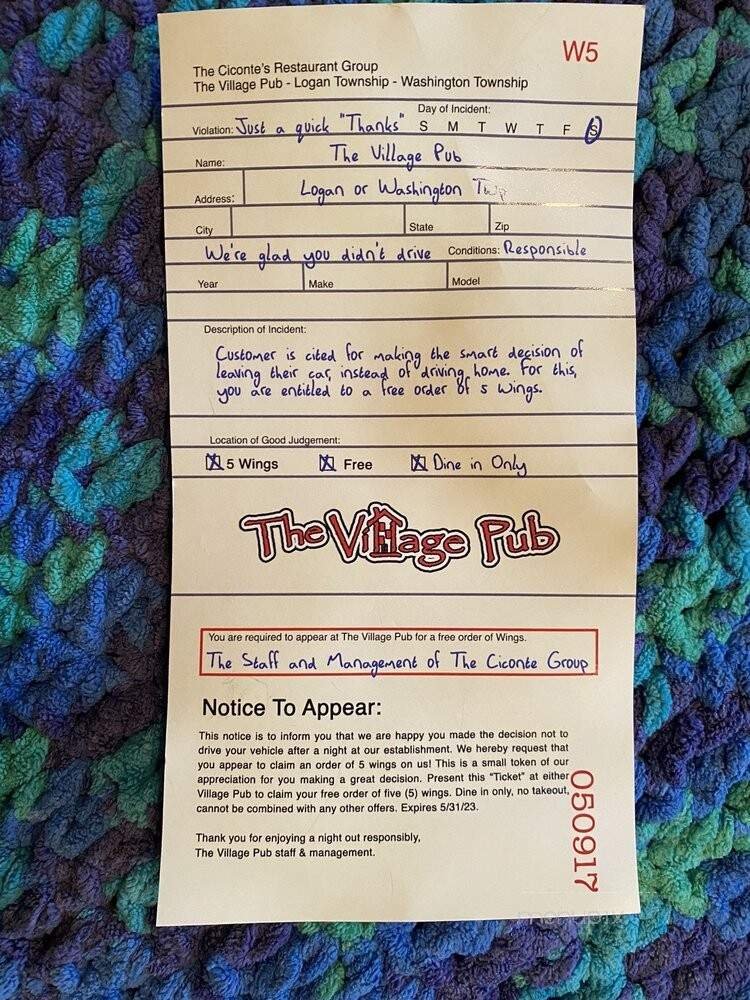 W5
The Ciconte's Restaurant Group
The Village Pub - Logan Township - Washington Township
Day of Incident:
Violation: Just a quick "Thanks" S M T W T F S
Name: The Village Pub
Address: Logan or Washington Twp
City State Zip
We're glad you didn't drive Conditions: Responsible
Year Make Model
Description of Incident:
Customer is cited for making the smart decision of
leaving their car, instead of driving home. For this,
you are entitled to a free order of 5 wings.
Location of Good Judgement:
5 Wings Free Dine in Only
The Village Pub
You are required to appear at The Village Pub for a free order of Wings.
The Staff and Management of The Ciconte Group
Notice To Appear:
This notice is to inform you that we are happy you made the decision not to
drive your vehicle after a night at our establishment. We hereby request that
you appear to claim an order of 5 wings on us! This is a small token of our
appreciation for you making a great decision. Present this "Ticket" at either
Village Pub to claim your free order of five (5) wings. Dine in only, no takeout,
cannot be combined with any other offers. Expires 5/31/23.
Thank you for enjoying a night out responsibly,
The Village Pub staff & management.
050917